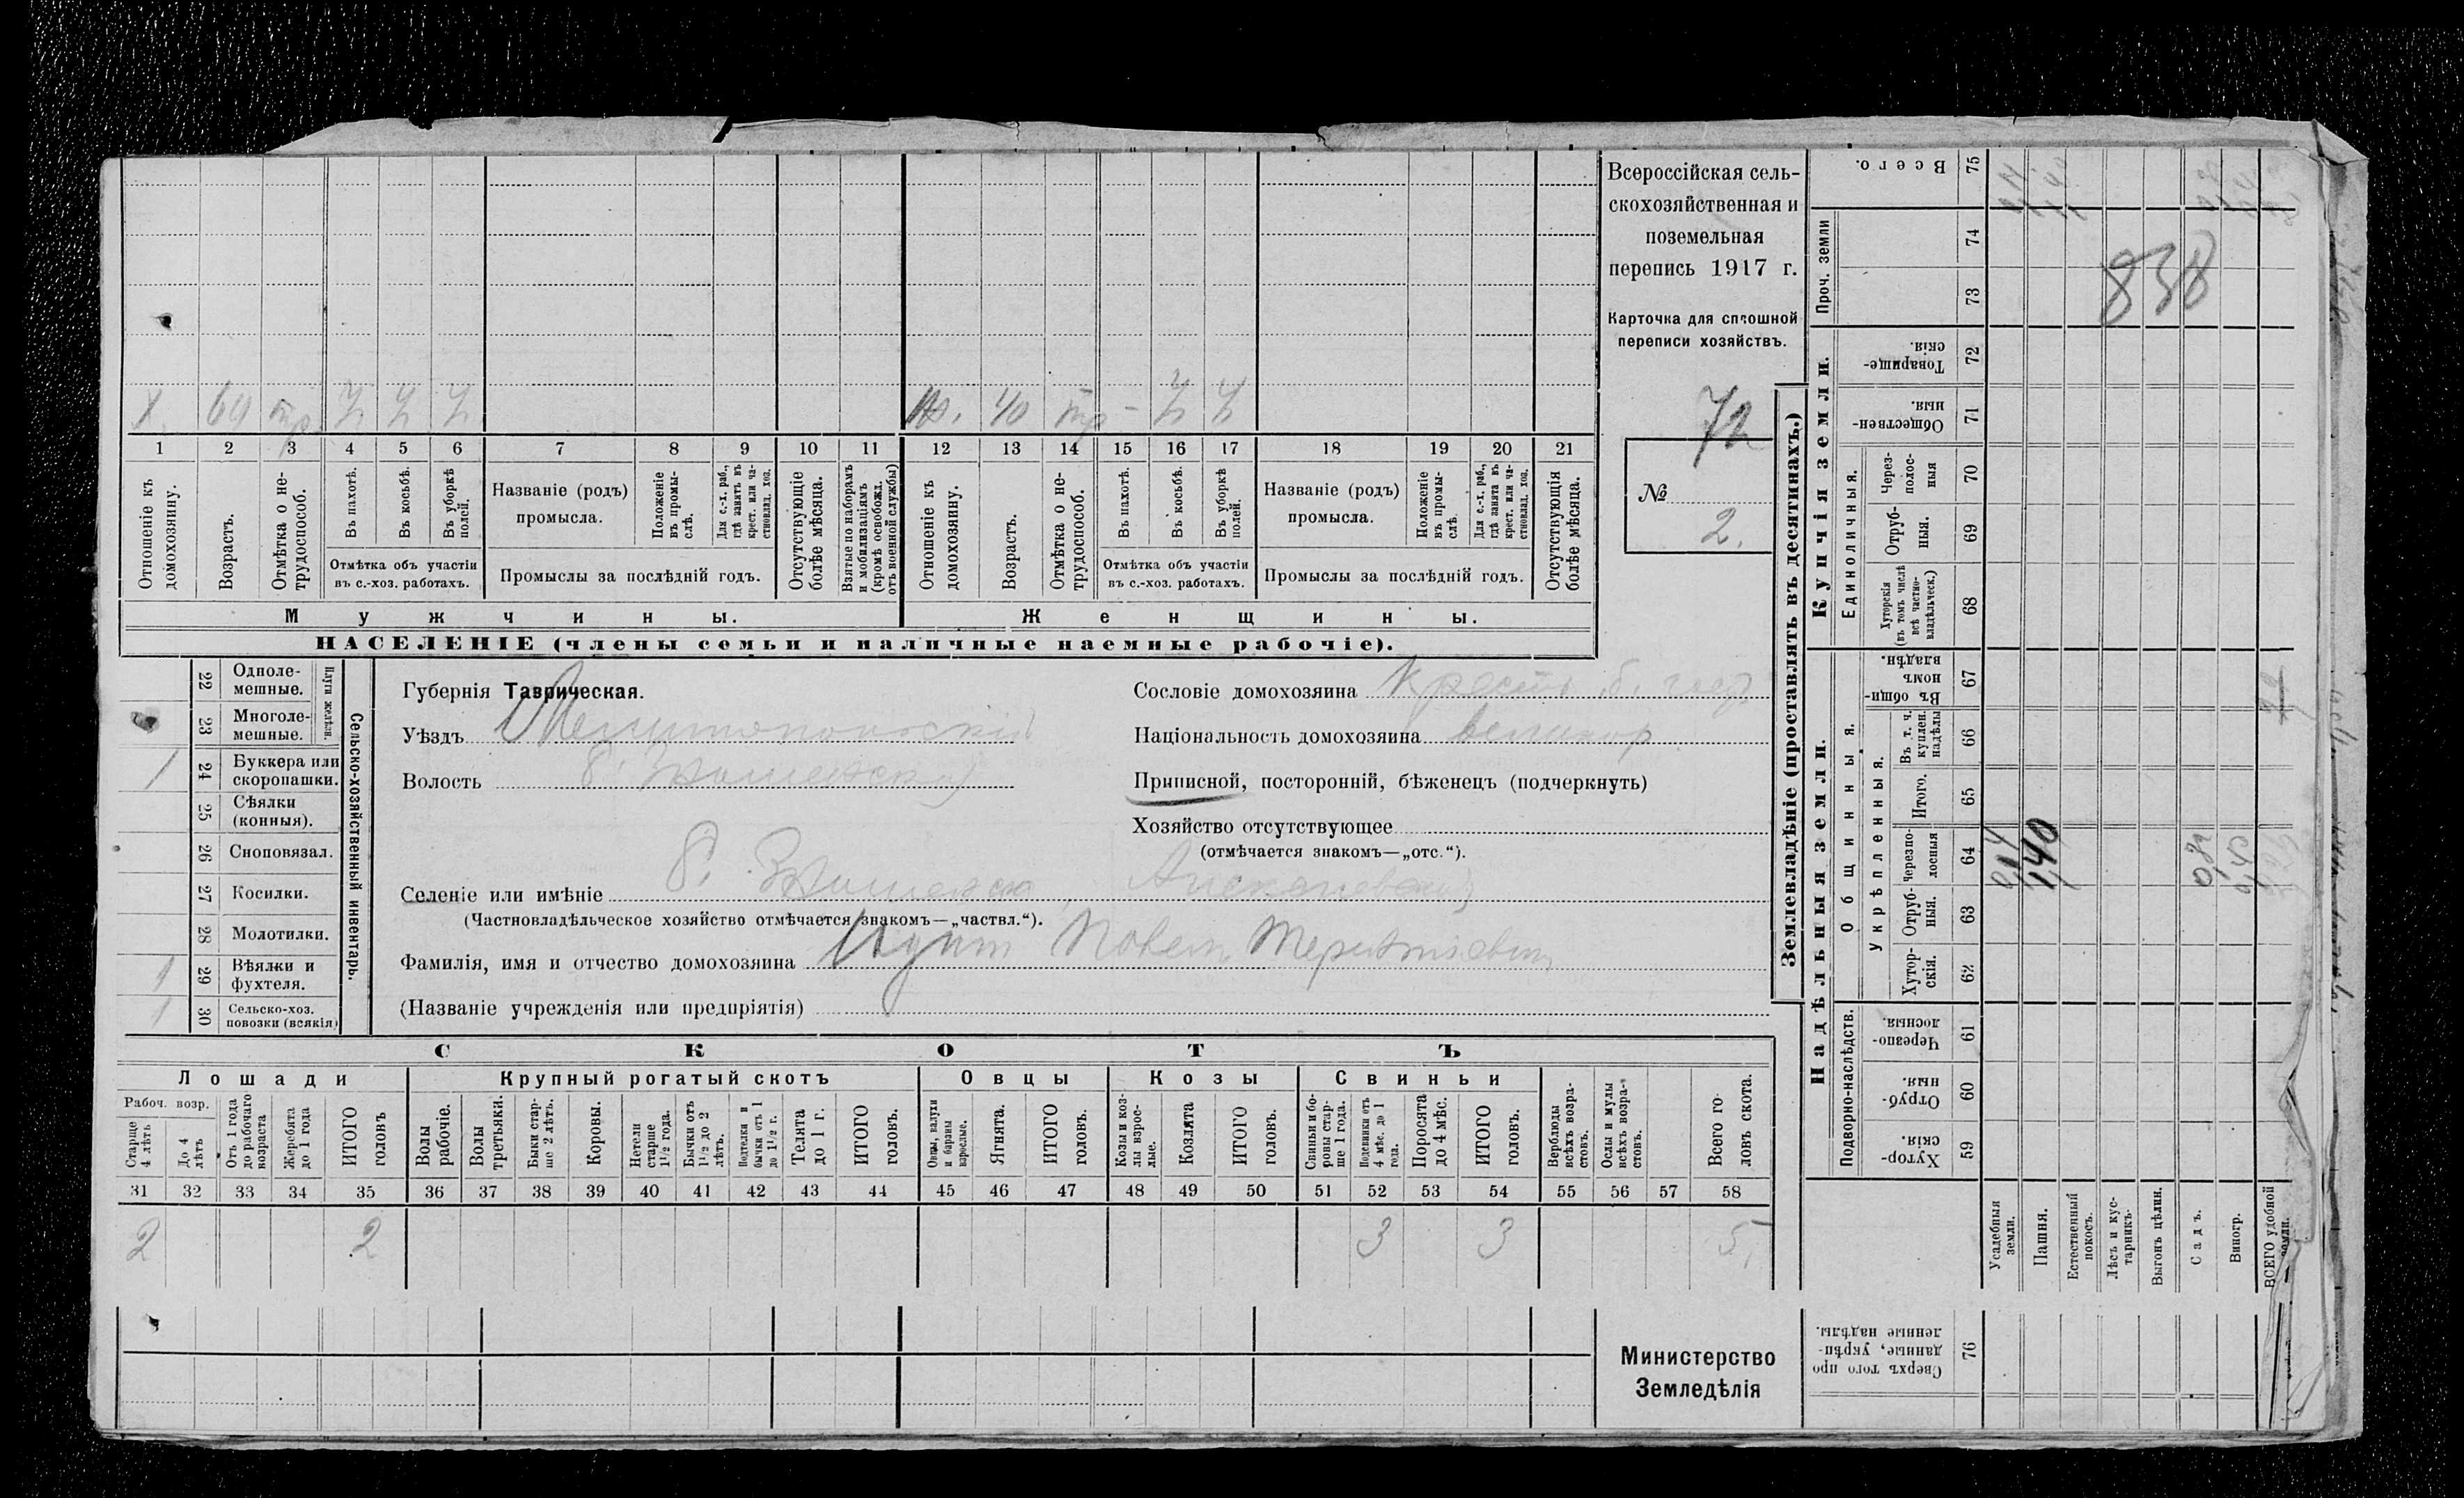 Всероссійская сель-
скохозяйственная и
поземельная
перепись 1917 г.
Карточка для сплошной
переписи хозяйствъ.
72
№
2.
х 64 тр.
ж. 40 тр
1 2 3 4 5 6 7 8 9 10 11 12 13 14 15 16 17 18 19 20 21
Отношеніе къ домохозяину.
Возрастъ.
Отмѣтка о не-трудоспособ.
Въ пахотѣ.
Въ косьбѣ.
Въ уборкѣ полей.
Отмѣтка объ участіи
въ с.-хоз. работахъ.
Названіе (родъ)
промысла.
Положеніе въ промы-слѣ.
Для с.-х. раб., гдѣ занятъ въ крест. или ча-стновлад. хоз.
Промыслы за послѣдній годъ.
Отсутствующіе болѣе мѣсяца.
Взятые по наборамъ и мобилизаціямъ (кромѣ освобожд. отъ военной службы)
Отношеніе къ домохозяину.
Возрастъ.
Отмѣтка о не-трудоспособ.
Въ пахотѣ.
Въ косьбѣ.
Въ уборкѣ полей.
Отмѣтка объ участіи
въ с.-хоз. работахъ.
Названіе (родъ)
промысла.
Положеніе въ промы-слѣ.
Для с.-х. раб., гдѣ занята въ крест. или ча-стновлад. хоз.
Промыслы за послѣдній годъ.
Отсутствующія болѣе мѣсяца.
Мужчины.
Женщины.
НАСЕЛЕНІЕ (члены семьи и наличные наемные рабочіе).
22 Одноле-мешные.
23 Многоле-мешные.
Плуги желѣзн.
1 24 Буккера или скоропашки.
25 Сѣялки (конныя).
26 Сноповязал.
27 Косилки.
28 Молотилки.
1 29 Вѣялки и фухтеля.
1 30 Сельско-хоз. повозки (всякія)
Сельско-хозяйственный инвентарь.
Губернія Таврическая.
Уѣздъ Мелитопольскій
Волость
Селеніе или имѣніе
(Частновладѣльческое хозяйство отмѣчается знакомъ—„частвл.“).
Фамилія, имя и отчество домохозяина Терентіевич
(Названіе учрежденія или предпріятія)
Сословіе домохозяина Крестьян. б. госуд
Національность домохозяина великор
Приписной, посторонній, бѣженецъ (подчеркнуть)
Хозяйство отсутствующее
(отмѣчается знакомъ—„отс.“).
СКОТЪ
Лошади
Крупный рогатый скотъ
Овцы
Козы
Свиньи
Рабоч. возр.
Старше 4 лѣтъ
До 4 лѣтъ
Отъ 1 года до рабочаго возраста
Жеребята до 1 года
ИТОГО головъ
Волы рабочіе.
Волы третьяки.
Быки стар-ше 2 лѣтъ.
Коровы.
Нетели старше 1 1/2 года.
Бычки отъ 1 1/2 до 2 лѣтъ.
Подтелки и бычки отъ 1 до 1 1/2 г.
Телята до 1 г.
ИТОГО головъ.
Овцы, валухи и бараны взрослые.
Ягнята.
ИТОГО головъ.
Козы и коз-лы взрос-лые.
Козлята
ИТОГО головъ.
Свиньи и бо-ровы стар-ше 1 года.
Подсвинки отъ 4 мѣс. до 1 года.
Поросята до 4 мѣс.
ИТОГО головъ.
Верблюды всѣхъ возра-стовъ.
Ослы и мулы всѣхъ возра-стовъ.
Всего го-ловъ скота.
31 32 33 34 35 36 37 38 39 40 41 42 43 44 45 46 47 48 49 50 51 52 53 54 55 56 57 58
2 2 3 3 5
Министерство
Земледѣлія
Землевладѣніе (проставлять въ десятинахъ.)
Надѣльныя земли.
Купчія земли.
Проч. земли
Всего. 75
74
73
838
Товарище-скія. 72
Обществен-ныя. 71
Единоличныя.
Через-полос-ныя 70
Отруб-ныя. 69
Хуторскія (въ томъ числѣ всѣ частно-владѣльческ.) 68
Общинныя.
Въ общин-номъ владѣн. 67
Укрѣпленныя.
Въ т. ч. куплен. надѣлы 66
Итого. 65
Черезпо-лосныя 64
0,14 1,40
Отруб-ныя. 63
Хутор-скія. 62
Подворно-наслѣдств.
Черезпо-лосныя. 61
Отруб-ныя. 60
Хутор-скія. 59
Усадебныя земли.
Пашня.
Естественный покосъ.
Лѣсъ и кус-тарникъ.
Выгонъ цѣлин.
Садъ.
Виногр.
ВСЕГО удобной земли.
Сверхъ того про-данные, укрѣп-ленные надѣлы. 76